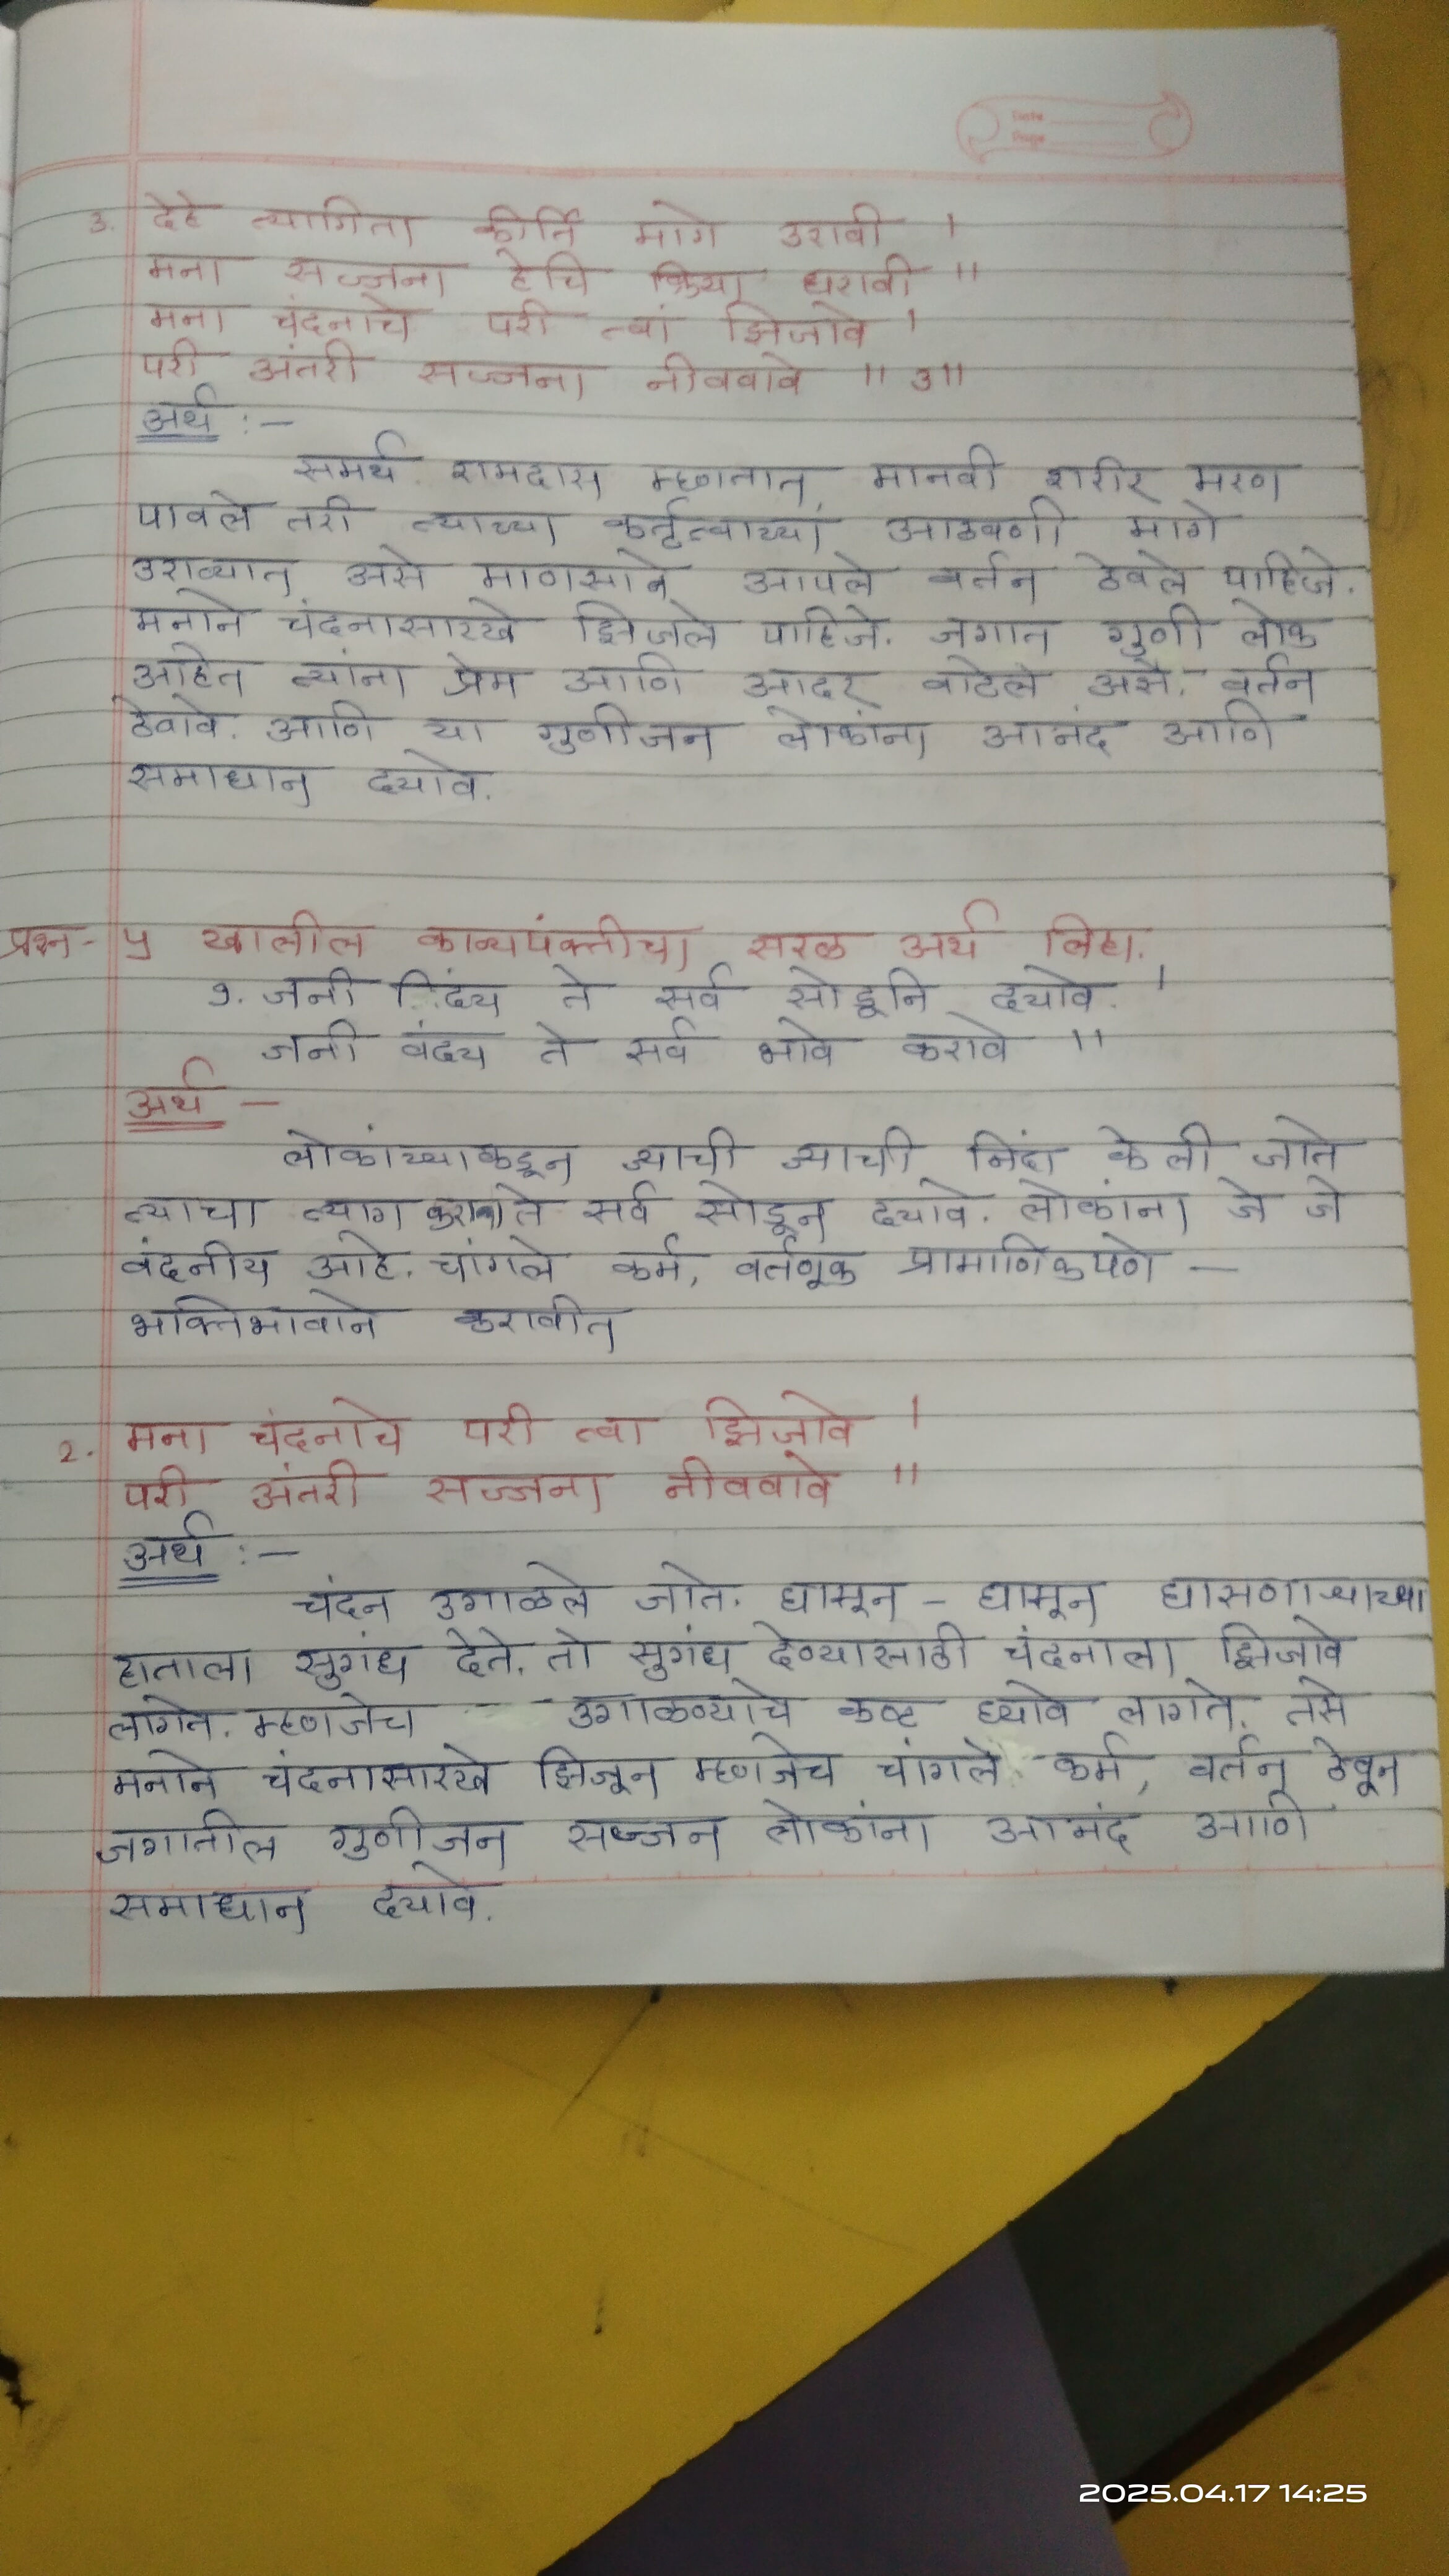 Date
Page
3. देहे त्यागिता कीर्ति मागे उरावी ।
मना सज्जना हेचि क्रिया धरावी ॥
मना चंदनाचे परी त्वां झिजावे ।
परी अंतरी सज्जना नीववावे ॥ ३॥
अर्थ :-
समर्थ रामदास म्हणतात, मानवी शरीर मरण
पावले तरी त्याच्या कर्तृत्वाच्यां आठवणी मागे
उराव्यात असे माणसाने आपले वर्तन ठेवले पाहिजे.
मनाने चंदनासारखे झिजले पाहिजे. जगात गुणी लोक
आहेत त्यांना प्रेम आणि आदर वाटेल असे. वर्तन
ठेवावे. आणि या गुणीजन लोकांना आनंद आणि
समाधान दयावे.
प्रश्न- ५ खालील काव्यपंक्तीचा सरळ अर्थ लिहा.
१. जनी निंदय ते सर्व सोडूनि दयावे. ।
जनी वंदय ते सर्व भावे करावे ॥
अर्थ -
लोकांच्याकडून ज्याची ज्याची निंदा केली जाते
त्याचा त्याग ते सर्व सोडून दयावे. लोकांना जे जे
वंदनीय आहे. चांगले कर्म, वर्तणूक प्रामाणिकपणे -
भक्तिभावाने करावीत
2. मना चंदनाचे परी त्वा झिजावे ।
परी अंतरी सज्जना नीववावे ॥
अर्थ :-
चंदन उगाळले जाते. घासून - घासून घासणाऱ्याच्या
हाताला सुगंध देते. तो सुगंध देण्यासाठी चंदनाला झिजावे
लागते. म्हणजेच -- उगाळण्याचे कष्ट घ्यावे लागते. तसे
मनाने चंदनासारखे झिजून म्हणजेच चांगले कर्म, वर्तन ठेवून
जगातील गुणीजन सज्जन लोकांना आनंद आणि
समाधान दयावे.
2025.04.17 14:25